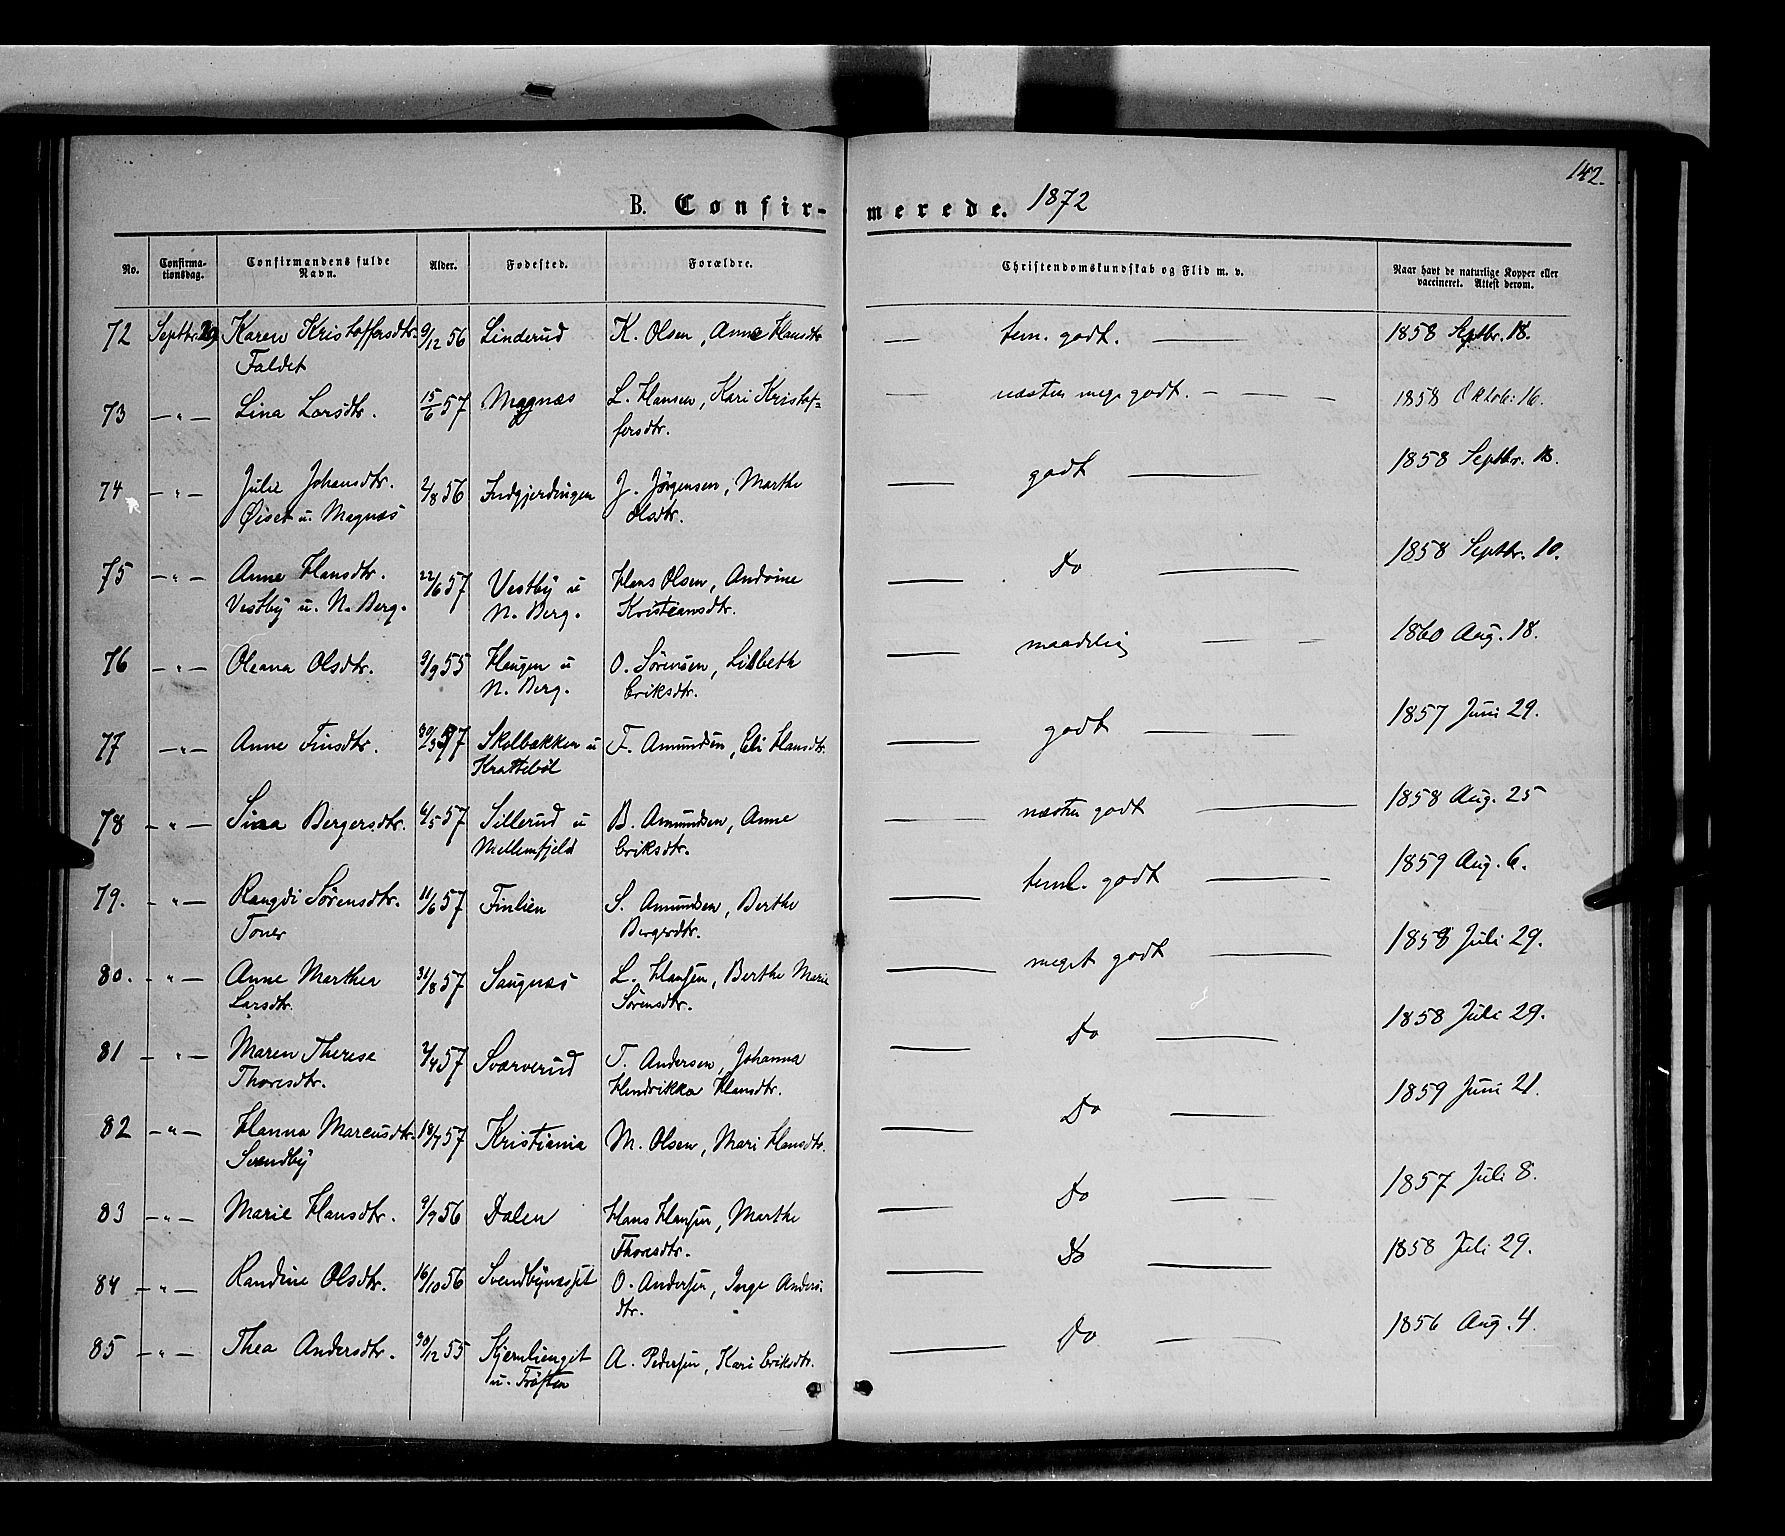 142.
B. Confir- merede. 1872
No. Confirma-tionsdag. Confirmandens fulde Navn. Alder. Fødested. Forældre. Christendomskundskab og Flid m. v. Naar havt de naturlige Kopper eller vaccineret. Attest derom.
72 Septbr. 29 Karen Kristoffersdtr. 9/12 56 Linderud K. Olsen, Anne Hansdtr — tem. godt. — 1858 Septbr. 18.
Faldet
73 — " — Lina Larsdtr. 15/6 57 Magnæs L. Hansen, Kari Kristof- — næsten meg. godt. — — — 1858 Oktob: 16.
fersdtr.
74 — " — Julie Johansdtr. 2/8 56 Indgjerdingen J. Jörgensen, Marthe — godt — 1858 Septbr. 18.
Øiset u. Magnæs Olsdtr.
75 — " — Anne Hansdtr. 22/6 57 Vestby u Hans Olsen, Andrine — Do — 1858 Septbr. 10.
Vestby u. N. Berg. N. Berg. Kristiansdtr.
76 — " — Oleana Olsdtr. 9/9 55 Haugen u O. Sörensen, Lisbeth — maadelig — — 1860 Aug. 18.
N. Berg. Eriksdtr.
77 — " — Anne Finsdtr. 30/3 57 Skolbækken u F. Amundsen, Eli Hansdtr. — godt — — 1857 Juni 29.
Krattebøl
78 — " — Sina Bergersdtr. 6/5 57 Sillerud u B. Amundsen, Anne — næsten godt — 1858 Aug. 25
Mellemfjeld Eriksdtr.
79. — " — Rangdi Sörensdtr. 11/6 57 Finlien S. Amundsen, Berthe — teml. godt — 1859 Aug. 6.
Toner Bergersdtr.
80. — " — Anne Marthea 31/8 57 Saugnæs L. Hansen, Berthe Marie — meget godt — 1858 Juli 29.
Larsdtr. Sörensdtr.
81 — " — Maren Therese 7/4 57 Sværverud T. Andersen, Johanna — Do — 1858 Juli 29.
Thoresdtr. Hendrikka Hansdtr.
82 — " — Hanna Marcusdtr. 18/7 57 Kristiania M. Olsen, Mari Hansdtr. — Do — 1859 Juni 21.
Svendby
83 — " — Marie Hansdtr. 9/9 56 Dalen Hans Hansen, Marthe — Do — — 1857 Juli 8.
Thoresdtr.
84 — " — Randine Olsdtr. 16/10 56 Svendbynæsset O. Andersen, Inge Anders- — Do — 1858 Juli 29.
dtr.
85 — " — Thea Andersdtr. 30/12 55 Skjernlienget A. Pedersen, Kari Eriksdtr. — Do — — 1856 Aug. 4.
u. Tröften